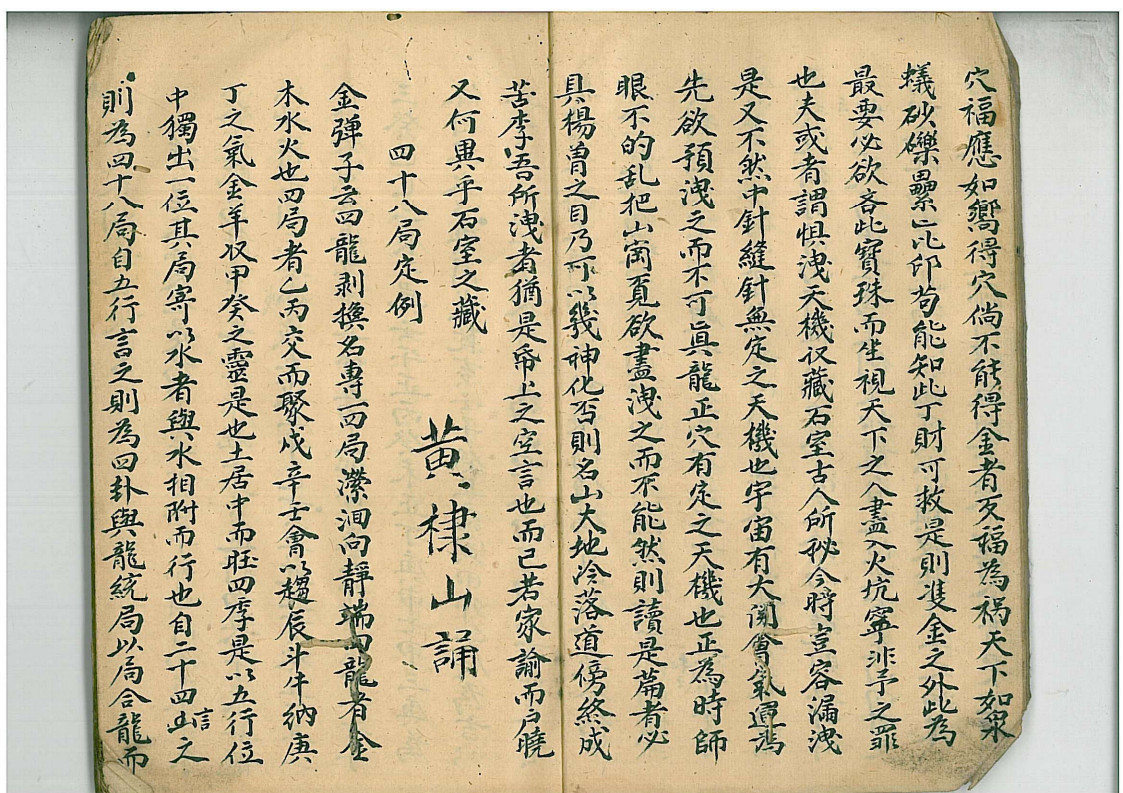 穴福應如嚮得穴倘不能得金者反福為禍天下如泉
蟻砂礫纍〻比印苟能知此丁財可救是則雙金之外此為
最要必欲吝此寶珠而坐視天下之人盡入火坑寧非予之罪
也夫或者謂惧洩天機収藏石室古人所秘今時豈容漏洩
是又不然中針縫針無定之天機也宇宙有大関會氣運為
先欲預洩之而不可真龍正穴有定之天機也正為時師
眼不的乱把山崗覔欲盡洩之而不能然則讀是篇者必
具楊曽之目乃可以幾神化否則名山大地冷落道傍終成
苦李吾所洩者猶是帋上之空言也而已若家諭而戶曉
又何異乎石室之藏
四十八局定例
黄棣山誦
金彈子云四龍剥換名專一四局瀠洄向靜端四龍有金
木水火也四局者乙丙交而聚戍辛壬會以趨辰斗牛納庚
丁之氣金羊収甲癸之靈是也土居中而旺四季是以五行位
中獨出一位其局寄以水者與水相附而行也自二十四山之
言
則為四十八局自五行言之則為四卦與龍統局以局合龍而